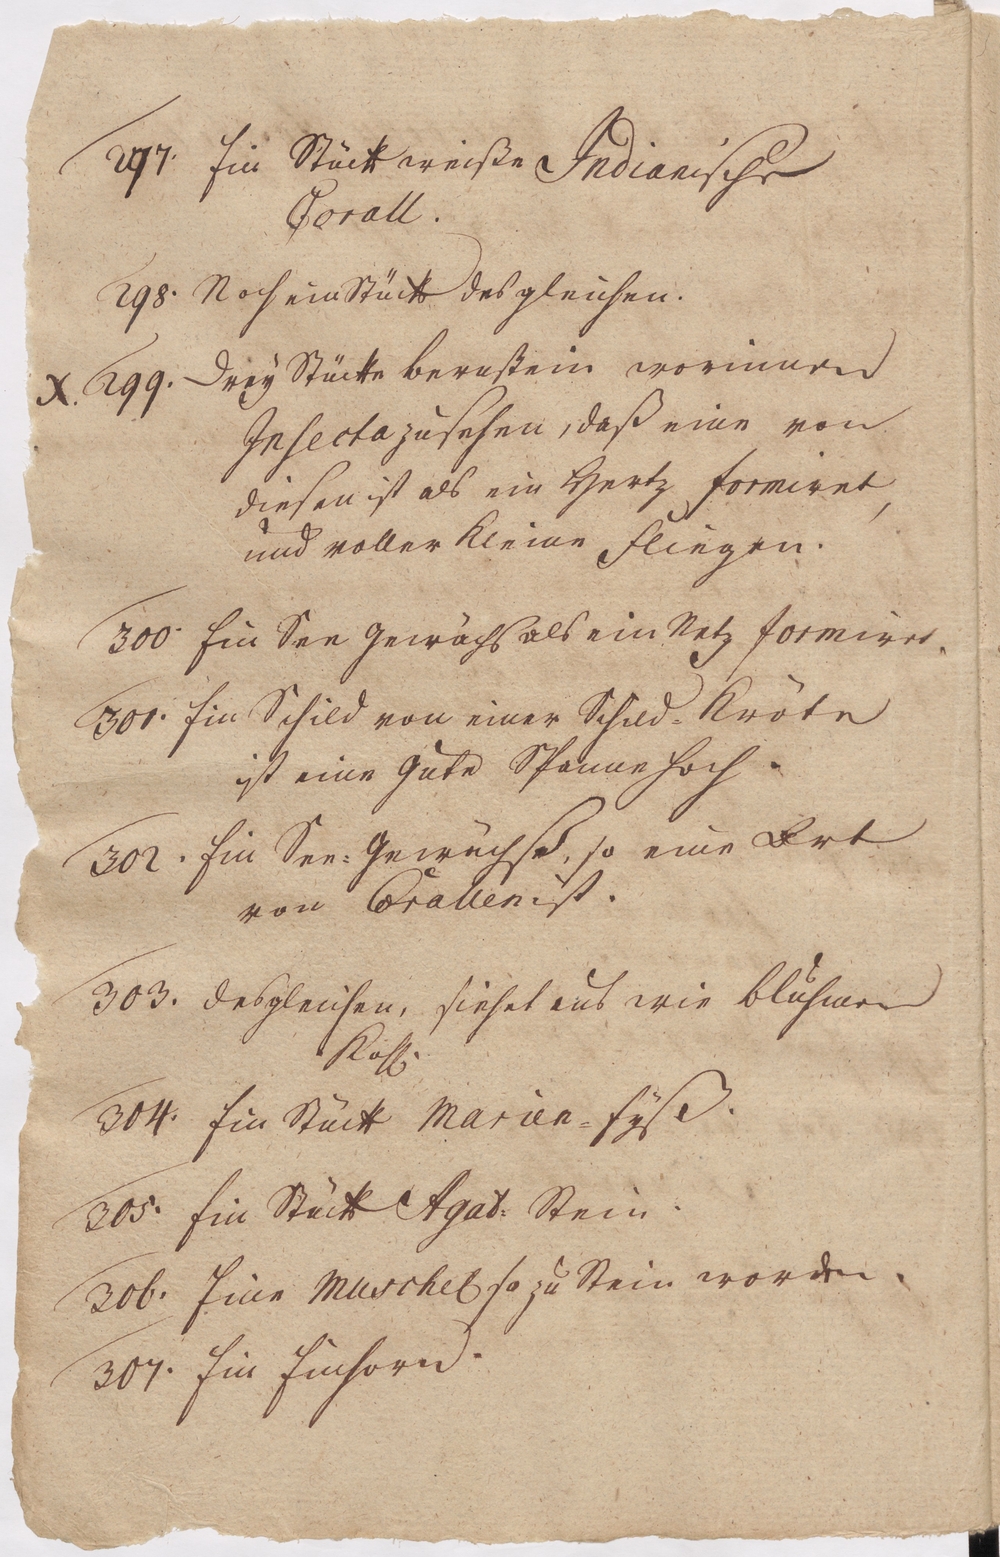 297. Ein Stück weiße Indianische
Corall.
298. Noch ein Stück desgleichen.
X. 299. Drey Stücke bernstein worinnen
Insecta zusehen, daß eine von
diesen ist als ein Hertz formiret,
und voller kleine Fliegen.
300. Ein See gewächs als ein Netz formiret.
301. Ein Schild von einer Schild-Kröte
ist eine gute Spanne hoch.
302. Ein See-Gewächse, so eine Art
von Corallen ist.
303. desgleichen, siehet aus wie bluhmen
Kohl.
304. Ein Stück Marien-Eyß.
305. Ein Stück Agat-Stein.
306. Eine Muschel so zu Stein worden.
307. Ein Einhorn.